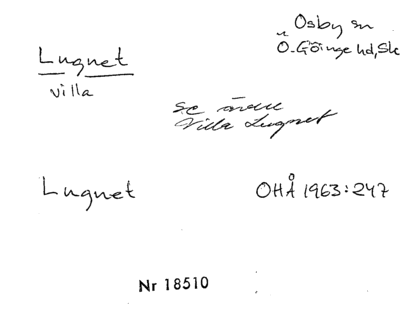 Lugnet
villa
Osby sn
Ö. Göinge hd, Sk
se även
Villa Lugnet
Lugnet
OHÅ 1963:247
Nr 18510